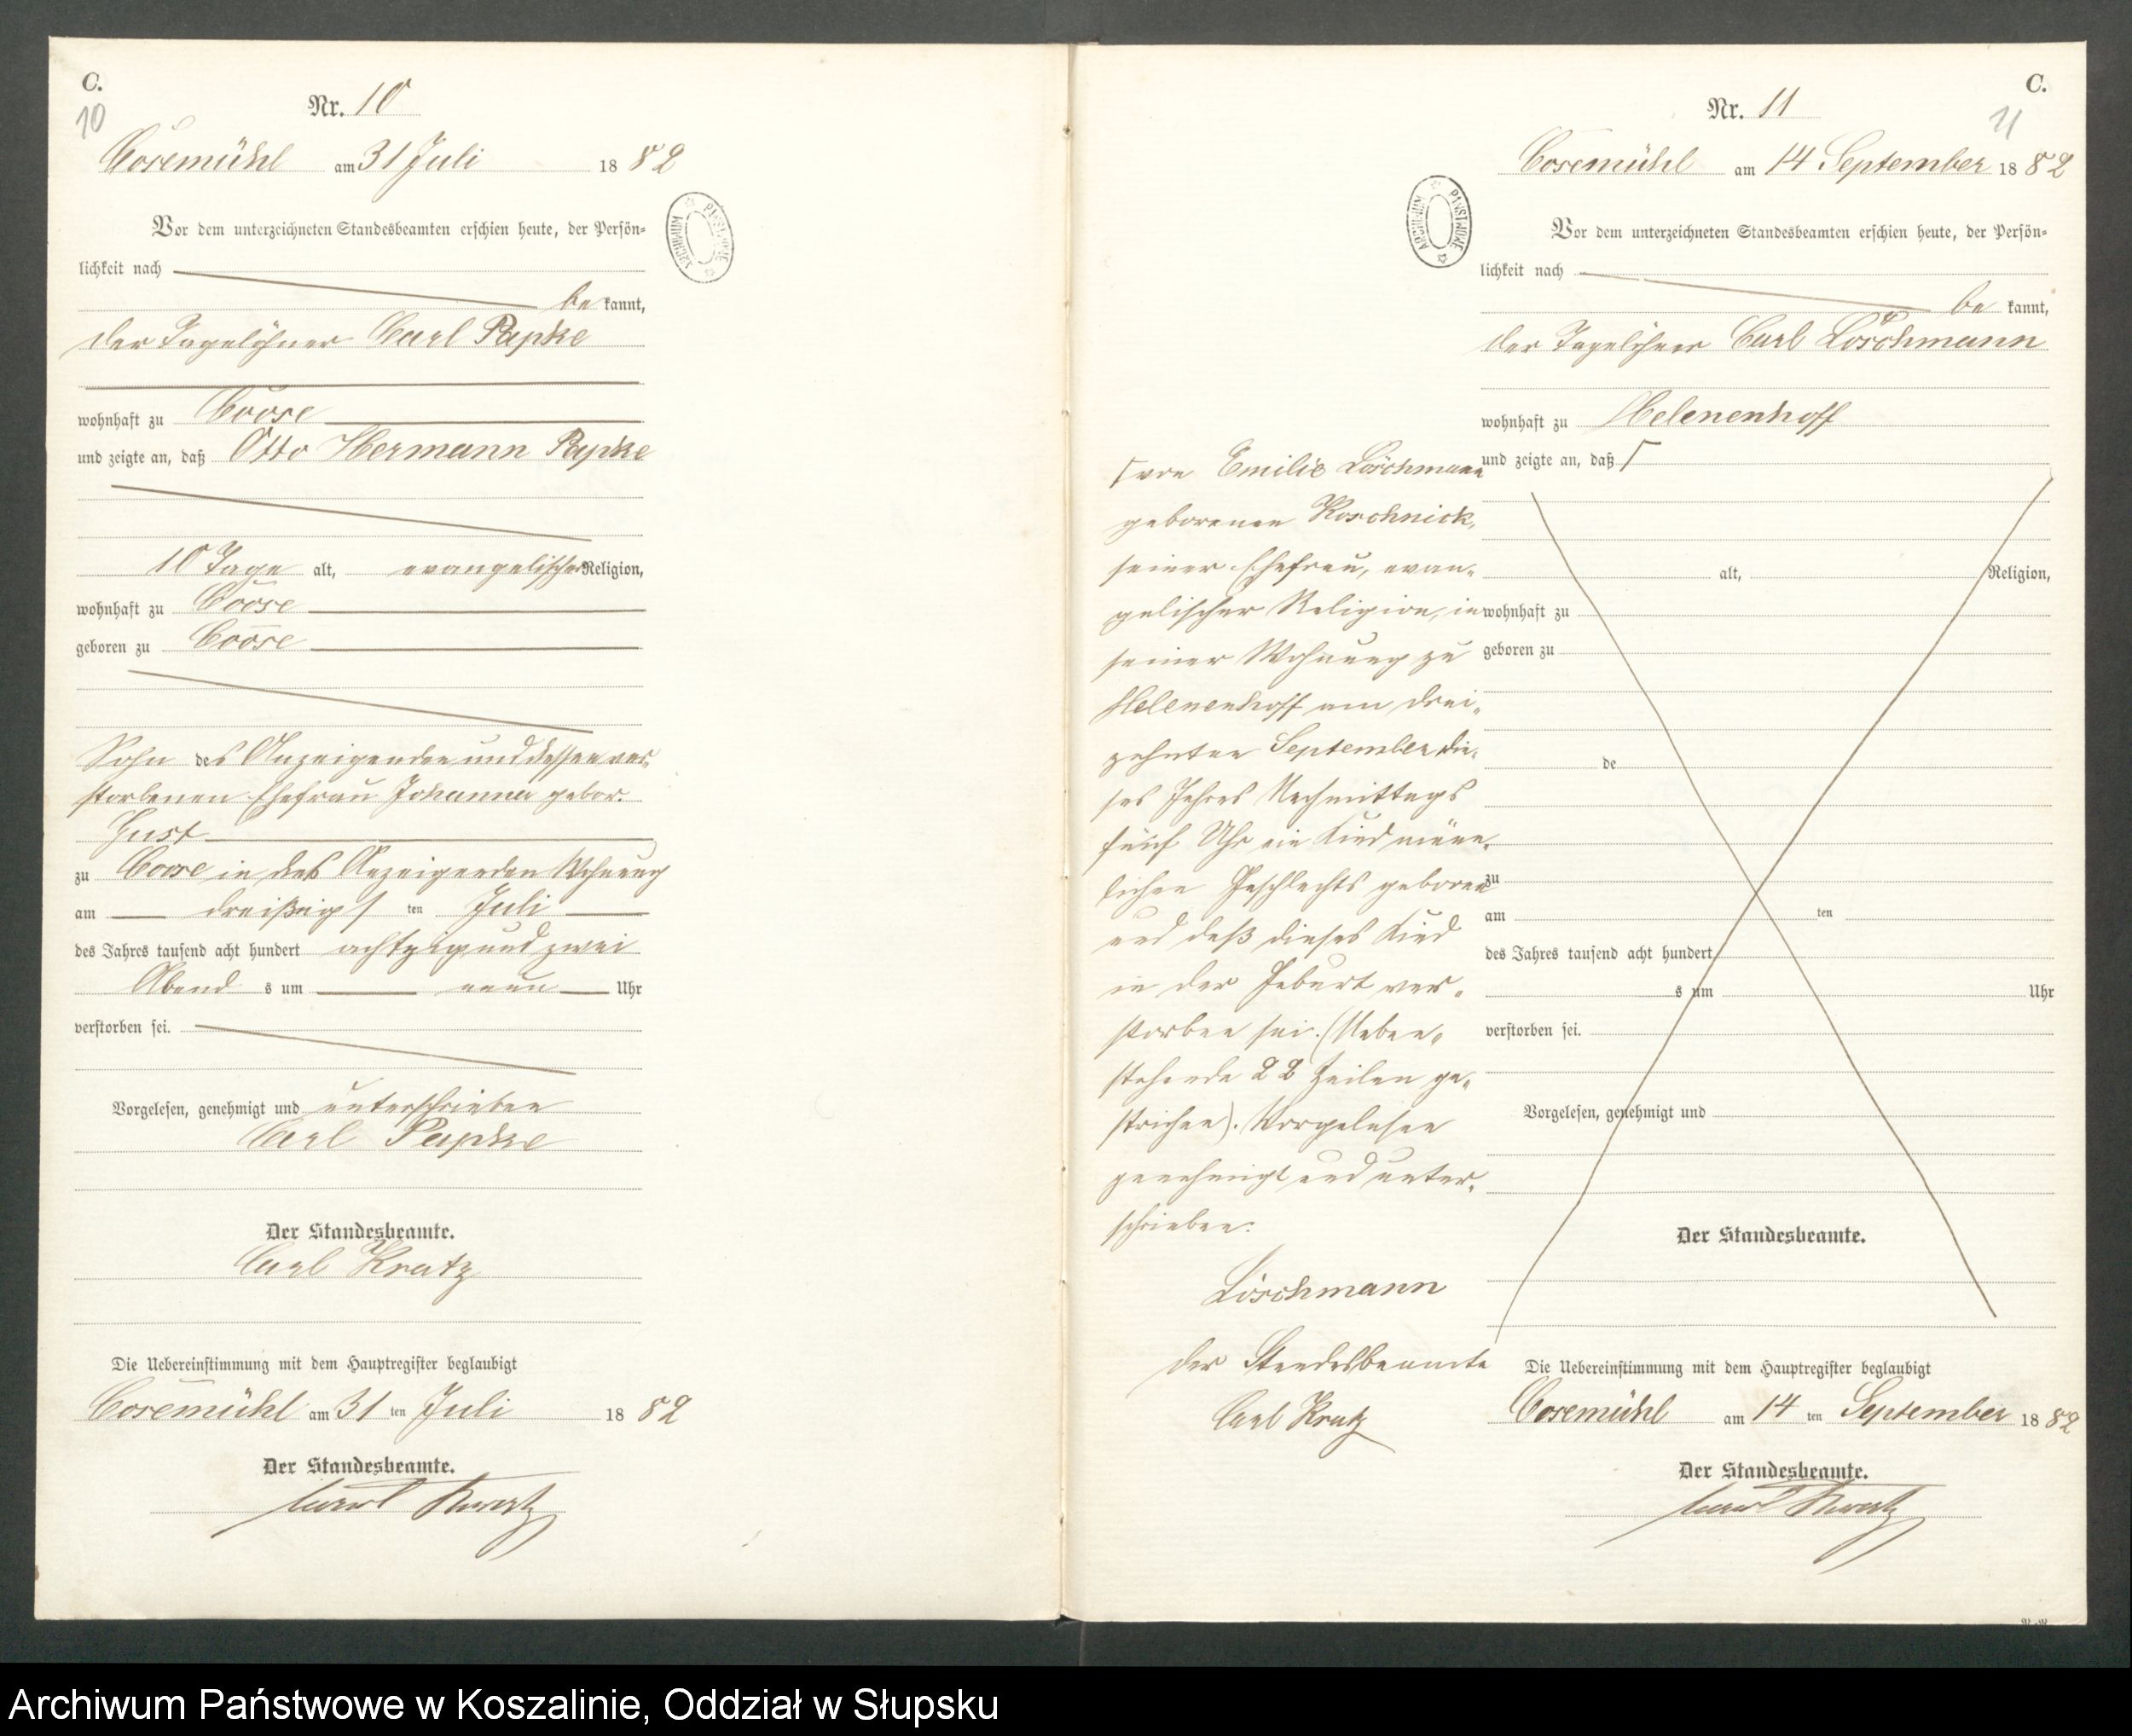 C.
10
Nr. 10
Cosemühl am 31 Juli 1882
Vor dem unterzeichneten Standesbeamten erschien heute, der Persön-
lichkeit nach
be kannt,
der Tagelöhner Carl Papke
wohnhaft zu Coose
und zeigte an, daß Otto Hermann Papke
10 Tage alt, evangelischer Religion,
wohnhaft zu Coose
geboren zu Coose
Sohn des Anzeigenden und dessen ver-
storbenen Ehefrau Johanna gebor.
Gust
zu Coose in des Anzeigenden Wohnung
am dreißigsten Juli
des Jahres tausend acht hundert achtzig und zwei
Abend s um neun Uhr
verstorben sei.
Vorgelesen, genehmigt und unterschrieben
Carl Papke
Der Standesbeamte.
Carl Kratz
Die Uebereinstimmung mit dem Hauptregister beglaubigt
Cosemühl am 31 ten Juli 1882
Der Standesbeamte.
Carl Kratz
ARCHIWUM PAŃSTWOWE
C.
11
Nr. 11
Cosemühl am 14 September 1882
Vor dem unterzeichneten Standesbeamten erschien heute, der Persön-
lichkeit nach
be kannt,
der Tagelöhner Carl Löschmann
wohnhaft zu Helenenhoff
und zeigte an, daß Γ
alt, Religion,
wohnhaft zu
geboren zu
de
zu
am ten
des Jahres tausend acht hundert
s um Uhr
verstorben sei.
Vorgelesen, genehmigt und
Der Standesbeamte.
Die Uebereinstimmung mit dem Hauptregister beglaubigt
Cosemühl am 14 ten September 1882
Der Standesbeamte.
Carl Kratz
ARCHIWUM PAŃSTWOWE
Γ von Emilie Löschmann
geborenen Koschnick,
seiner Ehefrau, evan-
gelischer Religion, in
seiner Wohnung zu
Helenenhoff am drei-
zehnten September die-
ses Jahres Nachmittags
fünf Uhr ein Kind männ-
lichen Geschlechts geboren
und daß dieses Kind
in der Geburt ver-
storben sei. (Neben-
stehende 22 Zeilen ge-
strichen). Vorgelesen
genehmigt und unter-
schrieben:
Löschmann
der Standesbeamte
Carl Kratz
Archiwum Państwowe w Koszalinie, Oddział w Słupsku